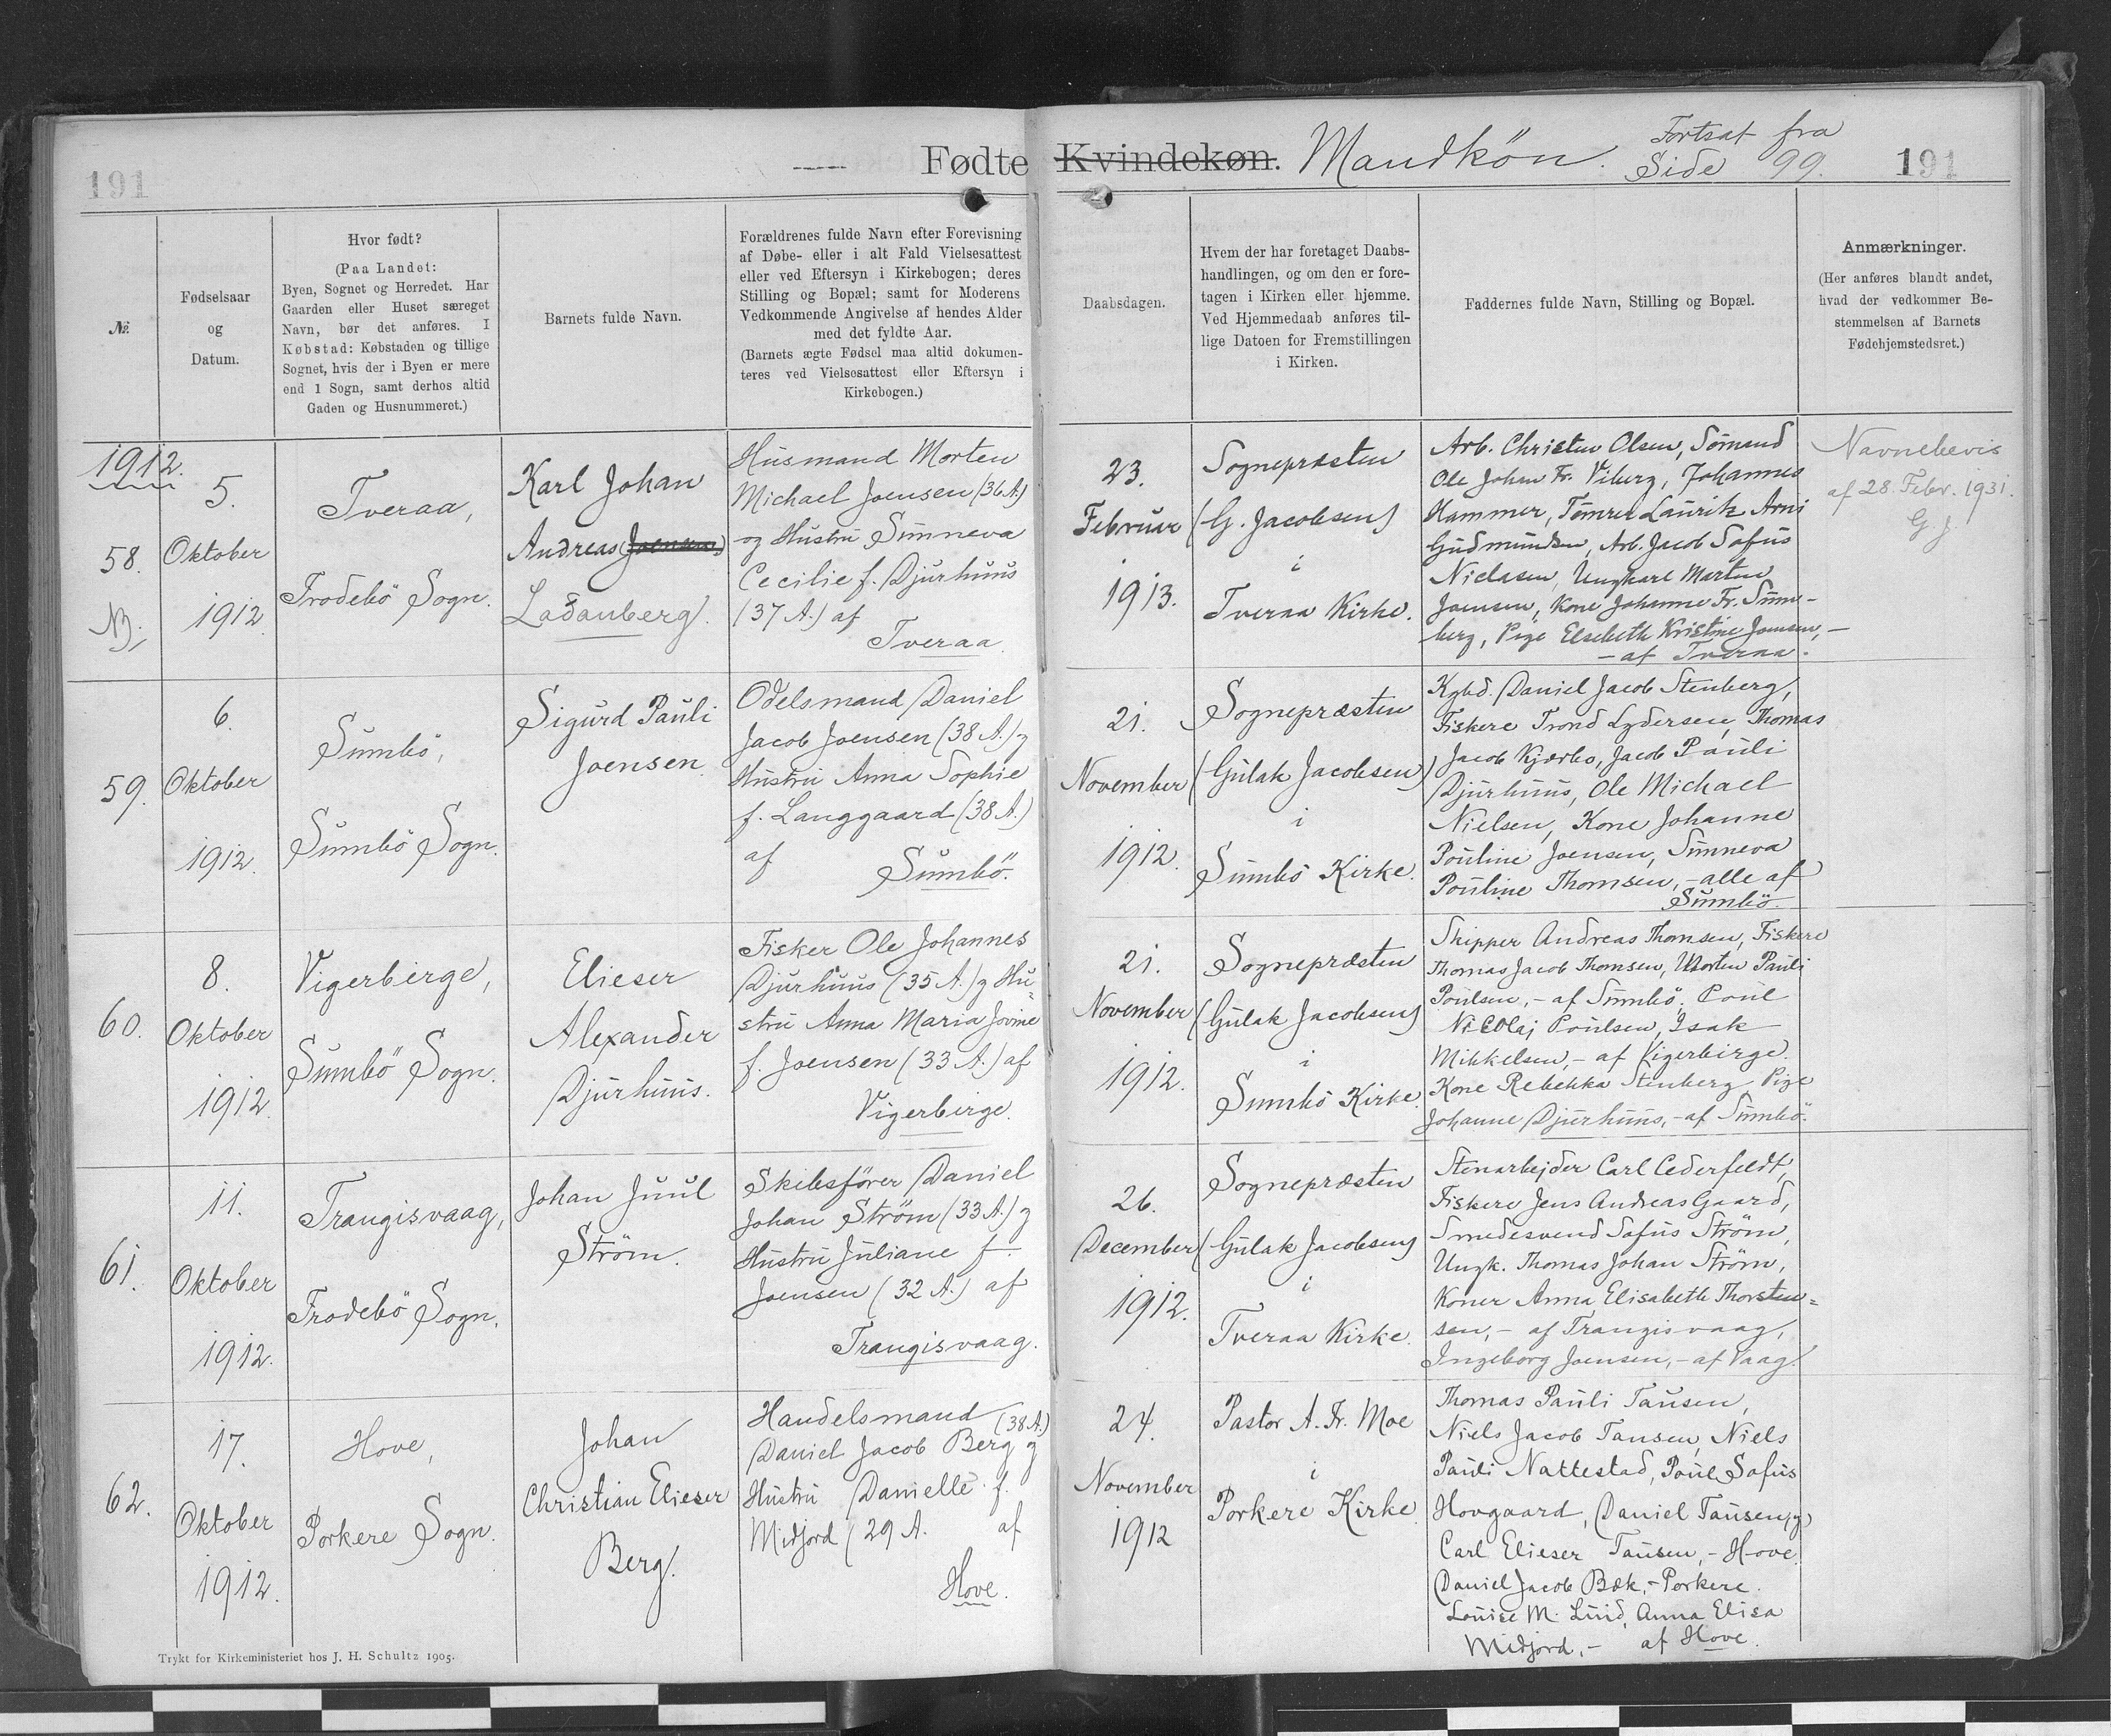 191
Fødte Kvindekøn. Mandkön. Fortsat fra
Side 99.
191
№
Fødselsaar
og
Datum.
Hvor født?
(Paa Landet:
Byen, Sognet og Herredet. Har
Gaarden eller Huset særeget
Navn, bør det anføres. I
Købstad: Købstaden og tillige
Sognet, hvis der i Byen er mere
end 1 Sogn, samt derhos altid
Gaden og Husnummeret.)
Barnets fulde Navn.
Forældrenes fulde Navn efter Forevisning
af Døbe- eller i alt Fald Vielsesattest
eller ved Eftersyn i Kirkebogen; deres
Stilling og Bopæl; samt for Moderens
Vedkommende Angivelse af hendes Alder
med det fyldte Aar.
(Barnets ægte Fødsel maa altid dokumen-
teres ved Vielsesattest eller Eftersyn i
Kirkebogen.)
Daabsdagen.
Hvem der har foretaget Daabs-
handlingen, og om den er fore-
tagen i Kirken eller hjemme.
Ved Hjemmedaab anføres til-
lige Datoen for Fremstillingen
i Kirken.
Faddernes fulde Navn, Stilling og Bopæl.
Anmærkninger.
(Her anføres blandt andet,
hvad der vedkommer Be-
stemmelsen af Barnets
Fødehjemstedsret.)
1912.
58.
NB.
5.
Oktober
1912
Tveraa,
Frodebö Sogn.
Karl Johan
Andreas (Joensen)
Ladanberg.
Husmand Morten
Michael Joensen (36 A.)
og Hustru Sunneva
Cecilie f. Djurhuus
(37 A.) af
Tveraa.
23.
Februar
1913.
Sognepræsten
(G. Jacobsen)
i
Tveraa Kirke.
Arb. Christen Olsen, Sömand
Ole Johan Fr. Viberg, Johannes
Hammer, Tömrer Lauritz Arni
Gudmundsen, Arb. Jacob Sofus
Niclasen, Ungkarl Morten
Joensen, Kone Johanne Fr. Sum-
berg, Pige Elsebeth Kristine Joensen, -
- af Tveraa.
Navnebevis
af 28. Febr. 1931.
G. J.
59.
6.
Oktober
1912.
Sumbö,
Sumbö Sogn.
Sigurd Pauli
Joensen.
Odelsmand Daniel
Jacob Joensen (38 A.) og
Hustru Anna Sophie
f. Langgaard (38 A.)
af
Sumbö.
21.
November
1912.
Sognepræsten
(Gulak Jacobsen)
i
Sumbö Kirke.
Kgbd. Daniel Jacob Stenberg,
Fiskere Trond Lydersen, Thomas
Jacob Kjærbo, Jacob Pauli
Djurhuus, Ole Michael
Nielsen, Kone Johanne
Pouline Joensen, Sunneva
Pouline Thomsen, - alle af
Sumbö.
60.
8.
Oktober
1912.
Vigerbirge,
Sumbö Sogn.
Elieser
Alexander
Djurhuus.
Fisker Ole Johannes
Djurhuus (35 A.) og Hu-
stru Anna Maria Jovine
f. Joensen (33 A.) af
Vigerbirge.
21.
November
1912.
Sognepræsten
(Gulak Jacobsen)
i
Sumbö Kirke.
Skipper Andreas Thomsen, Fiskere
Thomas Jacob Thomsen, Morten Pauli
Poulsen, - af Sumbö. Poul
Nicolaj Poulsen, Isak
Mikkelsen, - af Vigerbirge.
Kone Rebekka Stenberg, Pige
Johanne Djurhuus, - af Sumbö.
61.
11.
Oktober
1912.
Trangisvaag,
Frodebö Sogn.
Johan Juul
Ström.
Skibsförer Daniel
Johan Ström (33 A.) og
Hustru Juliane f.
Joensen (32 A.) af
Trangisvaag.
26.
December
1912.
Sognepræsten
(Gulak Jacobsen)
i
Tveraa Kirke.
Stenarbejder Carl Cederfeldt,
Fiskere Jens Andreas Gaard,
Smedesvend Sofus Ström,
Ungk. Thomas Johan Ström,
Koner Anna Elisabeth Thorsten-
sen, - af Trangisvaag,
Ingeborg Joensen, - af Vaag.
62.
17.
Oktober
1912.
Hove,
Porkere Sogn.
Johan
Christian Elieser
Berg.
Handelsmand (38 A.)
Daniel Jacob Berg og
Hustru Danielle f.
Midjord (29 A. af
Hove.
24.
November
1912
Pastor A. Fr. Moe
i
Porkere Kirke.
Thomas Pauli Tausen,
Niels Jacob Tausen, Niels
Pauli Nattestad, Poul Sofus
Hovgaard, Daniel Tausen, og
Carl Elieser Tausen, - Hove.
Daniel Jacob Bæk, - Porkere.
Louise M. Lund, Anna Elisa
Midjord, - af Hove.
Trykt for Kirkeministeriet hos J. H. Schultz 1905.